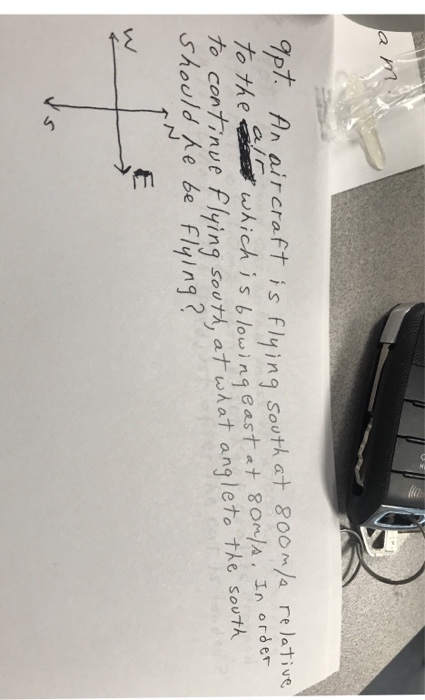 am.
9pt. An aircraft is flying south at 800m/s relative
air
to the which is blowing east at 80m/s. In order
to continue flying south, at what angle to the south
should he be flying?
N
W
E
S